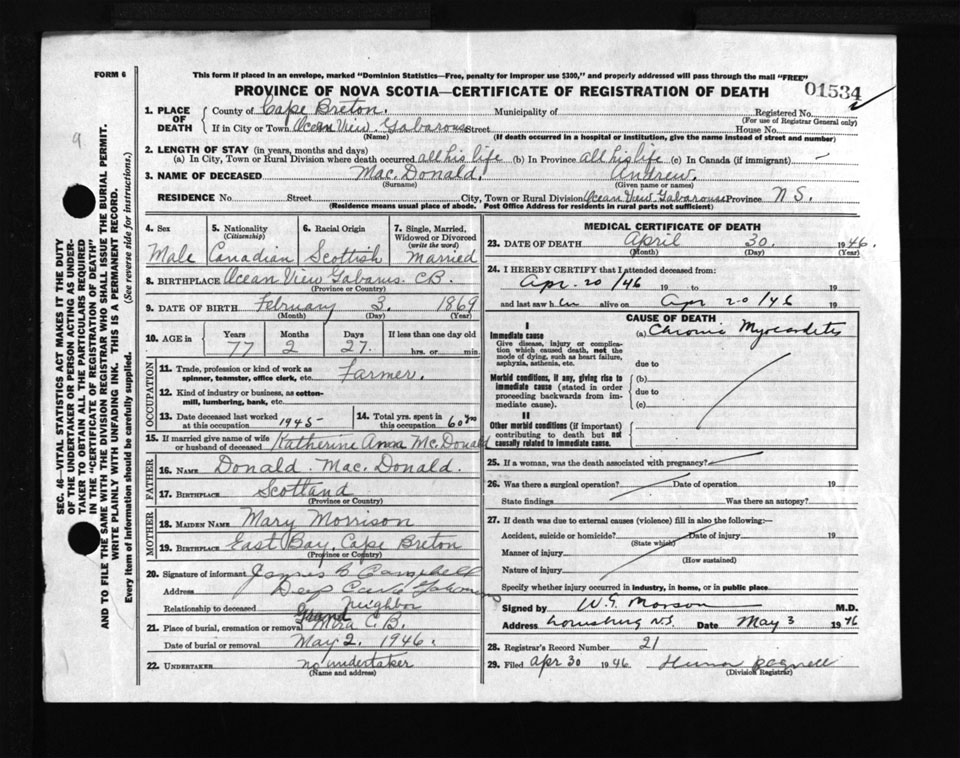 FORM 6
This form if placed in an envelope, marked "Dominion Statistics—Free, penalty for improper use $300," and properly addressed will pass through the mail "FREE"
PROVINCE OF NOVA SCOTIA—CERTIFICATE OF REGISTRATION OF DEATH
01534
9
1. PLACE OF DEATH County of Cape Breton. Municipality of Registered No.
(For use of Registrar General only)
If in City or Town Ocean View Gabarouse Street House No.
(Name) (If death occurred in a hospital or institution, give the name instead of street and number)
2. LENGTH OF STAY (in years, months and days)
(a) In City, Town or Rural Division where death occurred all his life (b) In Province all his life (c) In Canada (if immigrant) —
3. NAME OF DECEASED Mac. Donald. Andrew.
(Surname) (Given name or names)
RESIDENCE No. Street City, Town or Rural Division Ocean View Gabarouse Province N S.
(Residence means usual place of abode. Post Office Address for residents in rural parts not sufficient)
4. Sex 5. Nationality (Citizenship) 6. Racial Origin 7. Single, Married, Widowed or Divorced (write the word)
Male Canadian Scottish Married
8. BIRTHPLACE Ocean View Gabarus. C B.
(Province or Country)
9. DATE OF BIRTH February 3. 1869
(Month) (Day) (Year)
10. AGE in Years Months Days If less than one day old
77 2 27. hrs. or min.
OCCUPATION
11. Trade, profession or kind of work as spinner, teamster, office clerk, etc. Farmer.
12. Kind of industry or business, as cotton-mill, lumbering, bank, etc.
13. Date deceased last worked at this occupation 1945-
14. Total yrs. spent in this occupation 60 yrs
15. If married give name of wife or husband of deceased Katherine Anna Mc. Donald
FATHER
16. NAME Donald. Mac. Donald.
17. BIRTHPLACE Scotland
(Province or Country)
MOTHER
18. MAIDEN NAME Mary Morrison
19. BIRTHPLACE East Bay, Cape Breton
(Province or Country)
20. Signature of informant James B Campbell
Address Deep Cove
Relationship to deceased neighbor
21. Place of burial, cremation or removal Grand Mira C.B.
Date of burial or removal May 2. 1946.
22. UNDERTAKER no undertaker
(Name and address)
MEDICAL CERTIFICATE OF DEATH
23. DATE OF DEATH April 30. 1946.
(Month) (Day) (Year)
24. I HEREBY CERTIFY that I attended deceased from:
Apr. 20/46 19 to 19
and last saw h im alive on Apr 20/46 19
CAUSE OF DEATH
I
Immediate cause (a) Chronic Myocarditis
Give disease, injury or complication which caused death, not the mode of dying, such as heart failure, asphyxia, asthenia, etc.
due to
Morbid conditions, if any, giving rise to immediate cause (stated in order proceeding backwards from immediate cause).
(b)
due to
(c)
II
Other morbid conditions (if important) contributing to death but not causally related to immediate cause.
25. If a woman, was the death associated with pregnancy?
26. Was there a surgical operation? Date of operation 19
State findings Was there an autopsy?
27. If death was due to external causes (violence) fill in also the following:—
Accident, suicide or homicide? Date of injury 19
(State which)
Manner of injury
(How sustained)
Nature of injury
Specify whether injury occurred in industry, in home, or in public place.
Signed by W. G. Morson M.D.
Address Louisburg N.S. Date May 3 1946
28. Registrar's Record Number 21
29. Filed Apr 30 1946
(Division Registrar)
SEC. 46—VITAL STATISTICS ACT MAKES IT THE DUTY
OF THE UNDERTAKER OR PERSON ACTING AS UNDER-
TAKER TO OBTAIN ALL THE PARTICULARS REQUIRED
IN THE "CERTIFICATE OF REGISTRATION OF DEATH"
AND TO FILE THE SAME WITH THE DIVISION REGISTRAR WHO SHALL ISSUE THE BURIAL PERMIT.
WRITE PLAINLY WITH UNFADING INK. THIS IS A PERMANENT RECORD.
Every item of information should be carefully supplied. (See reverse side for instructions.)